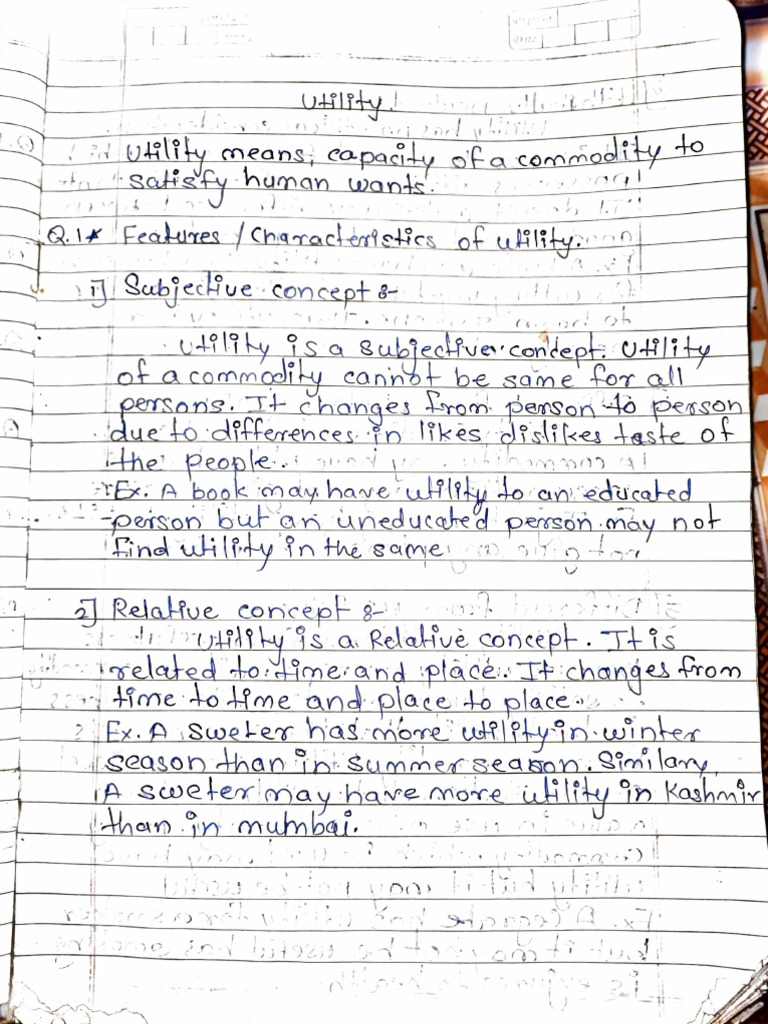 Utility.
Utility means, capacity of a commodity to
satisfy human wants.
Q.1* Features / Characteristics of utility.
1] Subjective concept :-
Utility is a subjective concept. Utility
of a commodity cannot be same for all
persons. It changes from person to person
due to differences in likes dislikes taste of
the people.
Ex. A book may have utility to an educated
person but an uneducated person may not
find utility in the same
2] Relative concept :-
Utility is a Relative concept. It is
related to time and place. It changes from
time to time and place to place.
Ex. A sweter has more utility in winter
season than in summer season. Similary,
A sweter may have more utility in Kashmir
than in mumbai.